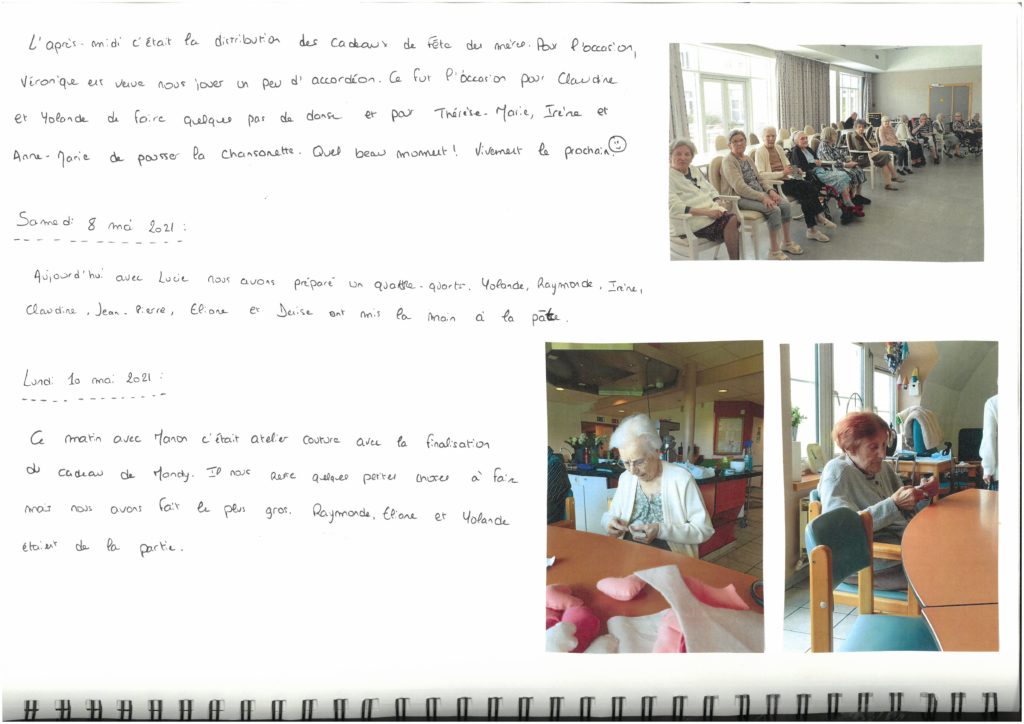 L'après-midi c'était la distribution des cadeaux de Fête des mères. Pour l'occasion,
Véronique est venue nous jouer un peu d'accordéon. Ce fut l'occasion pour Claudine
et Yolande de faire quelques pas de danse et pour Thérèse-Marie, Irène et
Anne-Marie de pousser la chansonette. Quel beau moment! Vivement le prochain!
Samedi 8 mai 2021 :
Aujourd'hui avec Lucie nous avons préparé un quattre-quarts. Yolande, Raymonde, Irène,
Claudine, Jean-Pierre, Eliane et Denise ont mis la main à la pâte.
Lundi 10 mai 2021 :
Ce matin avec Manon c'était atelier couture avec la finalisation
du cadeau de Mandy. Il nous reste quelques petites choses à faire
mais nous avons fait le plus gros. Raymonde, Eliane et Yolande
étaient de la partie.